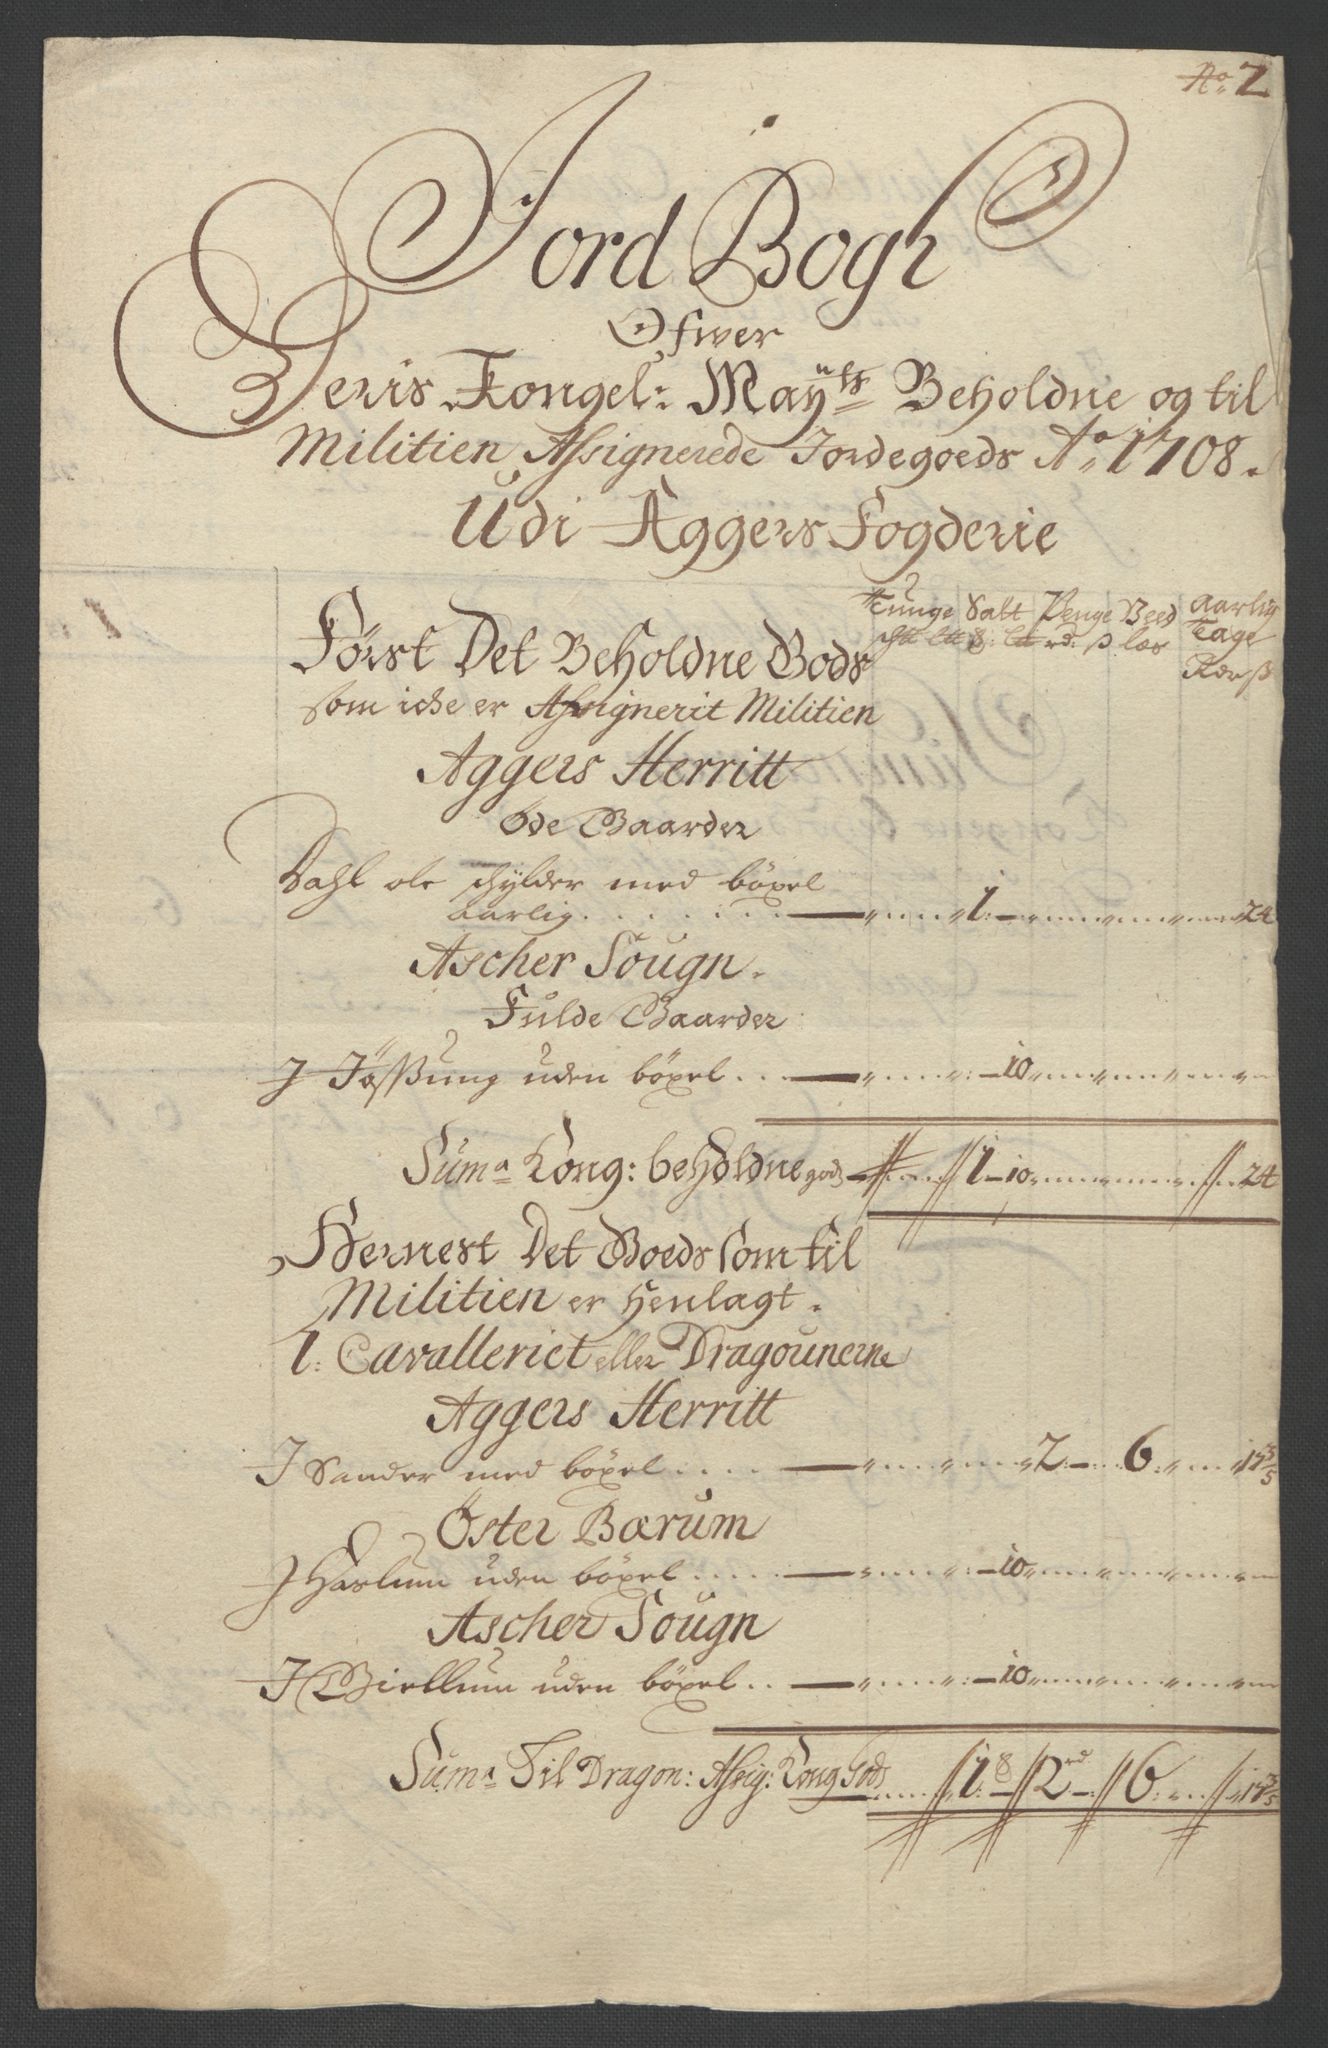 No 2
Jord Bogh
Ofwer
Deris Kongel: Mayts Beholdne og til
Militien Assignerede Jordegoeds Ao 1708.
Udi Aggers Fogderie
Tunge Salt Penge Veed Aarlig
Tage
Rdr ß
rd: ß læs
Først Det Beholdne Gods
som icke er Assignerit Militien
Aggers Herritt
Øde Gaarder
Dahl ole schylder med böxel
aarlig . . . . . . . 1 24
Ascher Sougn.
Fulde Gaarder
J Jøssung uden böxel . . 10
Suma Kong: beholdne gods 1 10 24
Dernest Det Goeds som til
Militien er Henlagt.
1: Cavalleriet eller Dragounerne
Aggers Herritt
J Sander med böxel . . . . 2 6 17 3/5
Öster Bærum
J Haslum uden böxel . . . . 10
Ascher Sougn
J Giellum uden böxel . . 10
Suma Til Dragon: Assig: Kong Gods 1 2 rd 6 17 3/5